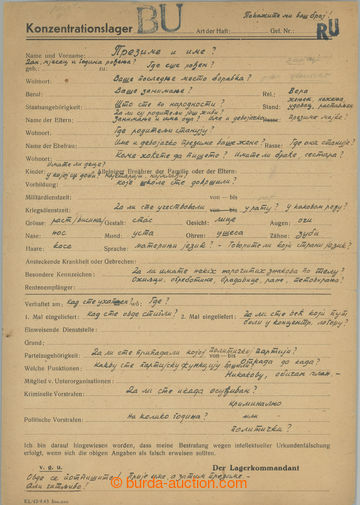 Покажите ми ваш број!
Konzentrationslager BU Art der Haft: Gef. Nr.: RU
Name und Vorname: Презиме и име?
geb.: Дан, мјесец и година рођења? zu: Где сте рођен?
Wohnort: Ваше последње место боравка?
Beruf: Ваше занимање? Rel.: Вера
Staatsangehörigkeit: Што сте по народности? Stand: жењен, нежења, удовац, растављен
Да ли су родитељи још живи?
Name der Eltern: Занимање и име оца? Име и девојачко презиме мајке?
Wohnort: Где родитељи станују?
Name der Ehefrau: Име и девојачко презиме ваше жене? Rasse: Где она станује?
Wohnort: Коме можете да пишете? Имате ли браће сестара?
Имате ли деце?
Kinder: Alleiniger Ernährer der Familie oder der Eltern:
Vorbildung: које школе сте довршили?
Militärdienstzeit: von — bis
Kriegsdienstzeit: Да ли сте учествовали von — bis у рату? У каковом роду?
Grösse: раст/висина Gestalt: стас Gesicht: лице Augen: очи
Nase: нос Mund: уста Ohren: ушеса Zähne: зуби
Haare: коса Sprache: матерњи језик? - Говорите ли који страни језик?
Ansteckende Krankheit oder Gebrechen:
Besondere Kennzeichen: Да ли имате каких нарочитих знакова по телу?
Rentenempfänger: Ожиљци, брадавице, ране,
Verhaftet am: кад сте ухапшен wo: Где?
1. Mal eingeliefert: кад сте овде стигли? 2. Mal eingeliefert: Да ли сте већ који пут
Einweisende Dienststelle: били у концентр. логору?
Grund:
Parteizugehörigkeit: Да ли сте припадали којој политичкој партији? von — bis Откада до када?
Welche Funktionen: Какову сте партијску функцију вршили?
Mitglied v. Unterorganisationen: Никакову, обичан члан. -
Kriminelle Vorstrafen: Да ли сте икада осуђивани?
криминално
Politische Vorstrafen: На колико година? или
политички?
Ich bin darauf hingewiesen worden, dass meine Bestrafung wegen intellektueller Urkundenfälschung
erfolgt, wenn sich die obigen Angaben als falsch erweisen sollten.
v. g. u. Der Lagerkommandant
Овде се потпишите! Прије име а затим презиме -
Али читљиво!
© burda-auction.com